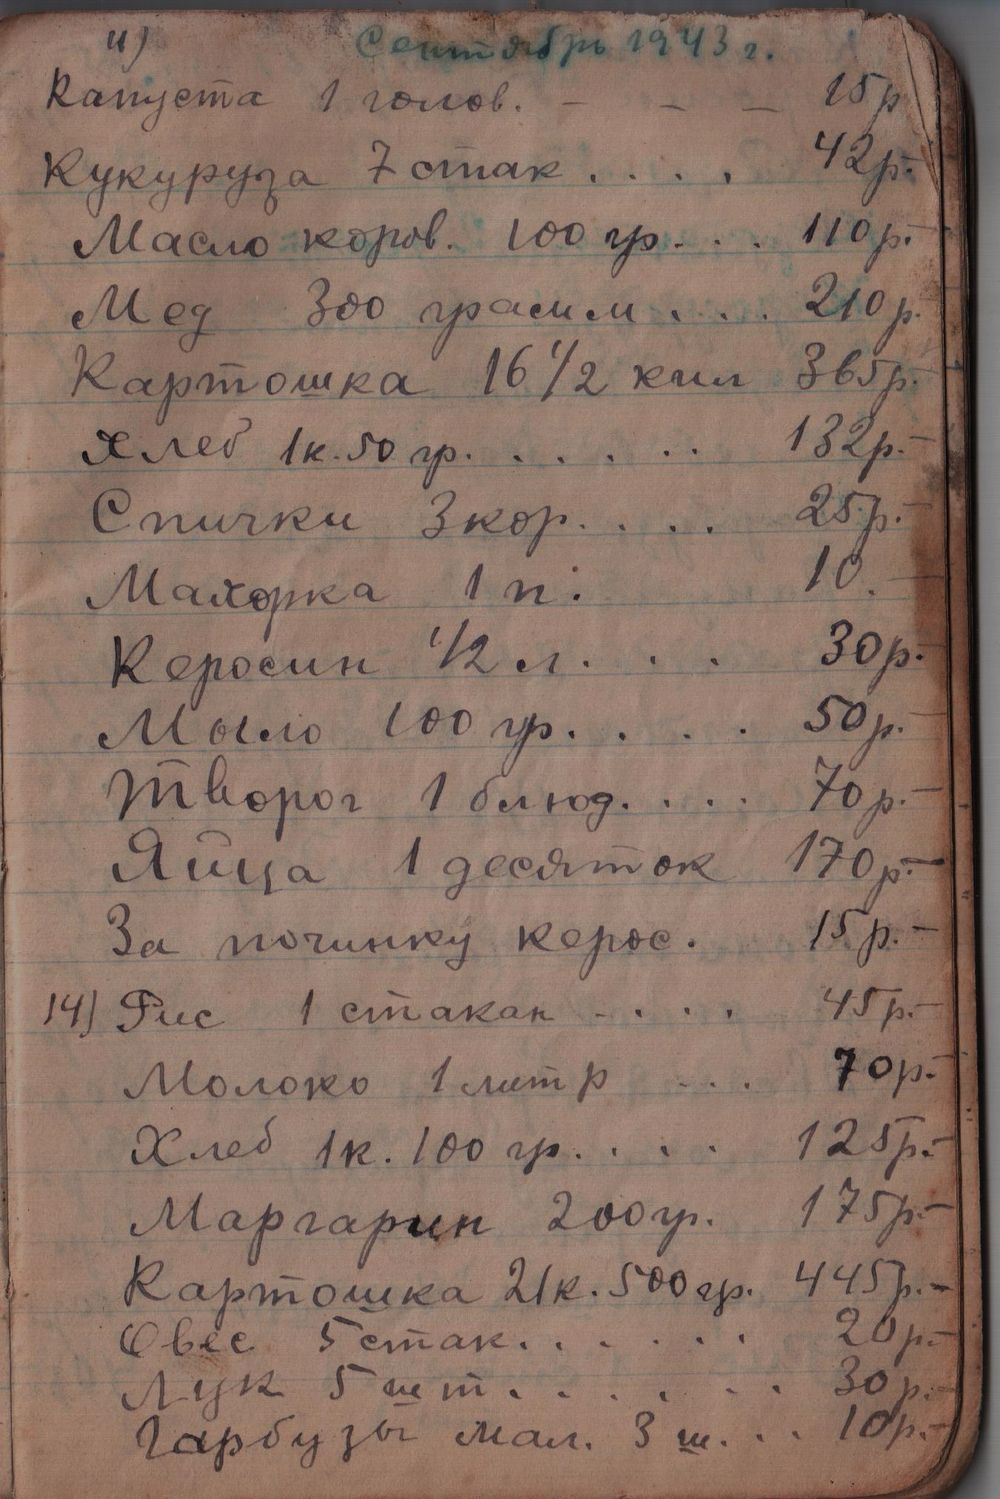 11) Сентябрь 1943 г.
Капуста 1 голов. - - - 15р
Кукуруза 7 стак . . . . 42р.-
Масло коров. 100 гр. . . 110р.-
Мед 300 грамм . . . 210р.
Картошка 16 1/2 кил 365р.-
Хлеб 1к. 50 гр. . . . . . . 132р.-
Спички 3 кор. . . . 25р.-
Махорка 1 п. 10. -
Керосин 1/2 л. . . . 30р.-
Мыло 100 гр. . . . 50р.-
Творог 1 блюд. . . . 70р.-
Яйца 1 десяток 170р.-
За починку керос. 15р.-
14) Рис 1 стакан - . . . 45р.-
Молоко 1 литр . . . 70р.-
Хлеб 1к. 100 гр. . . . 125р.-
Маргарин 200 гр. 175р.-
Картошка 21к. 500 гр. 445р.-
Овес 5 стак. . . . . . 20р.-
Лук 5 шт. . . . . . . 30р.-
Гарбузы мал. 3 ш. . . 10р.-